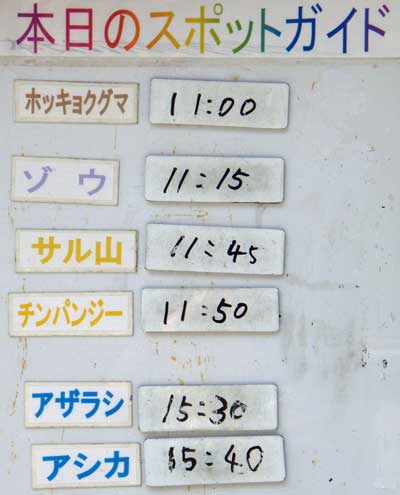 本日のスポットガイド
ホッキョクグマ 11:00
ゾウ 11:15
サル山 11:45
チンパンジー 11:50
アザラシ 15:30
アシカ 15:40